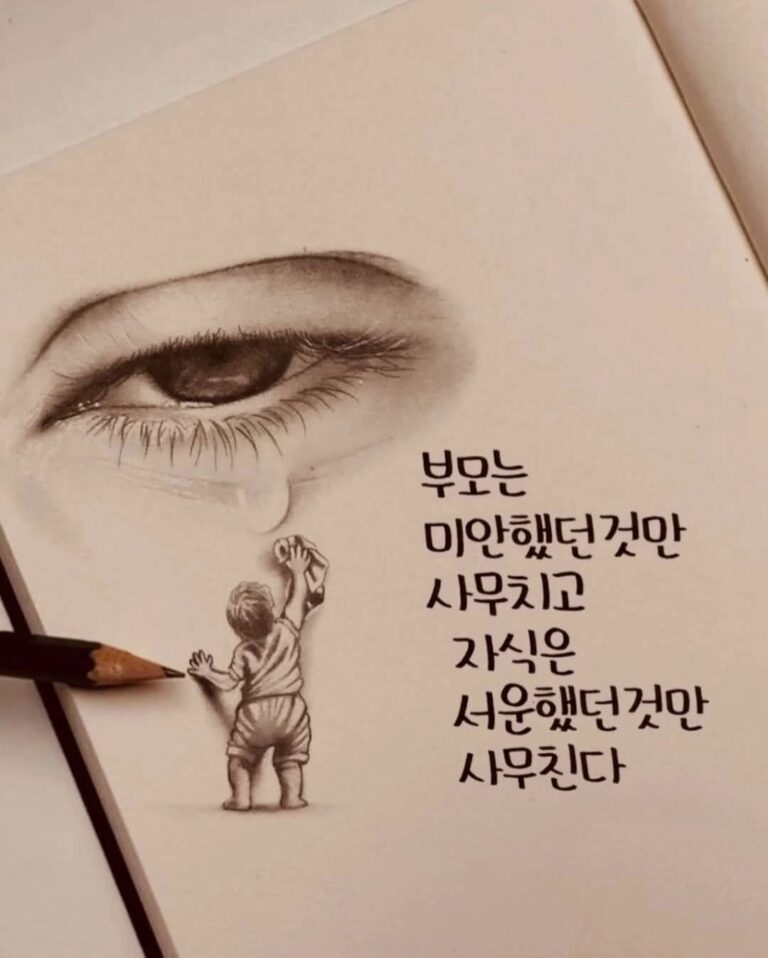 부모는
미안했던것만
사무치고
자식은
서운했던것만
사무친다